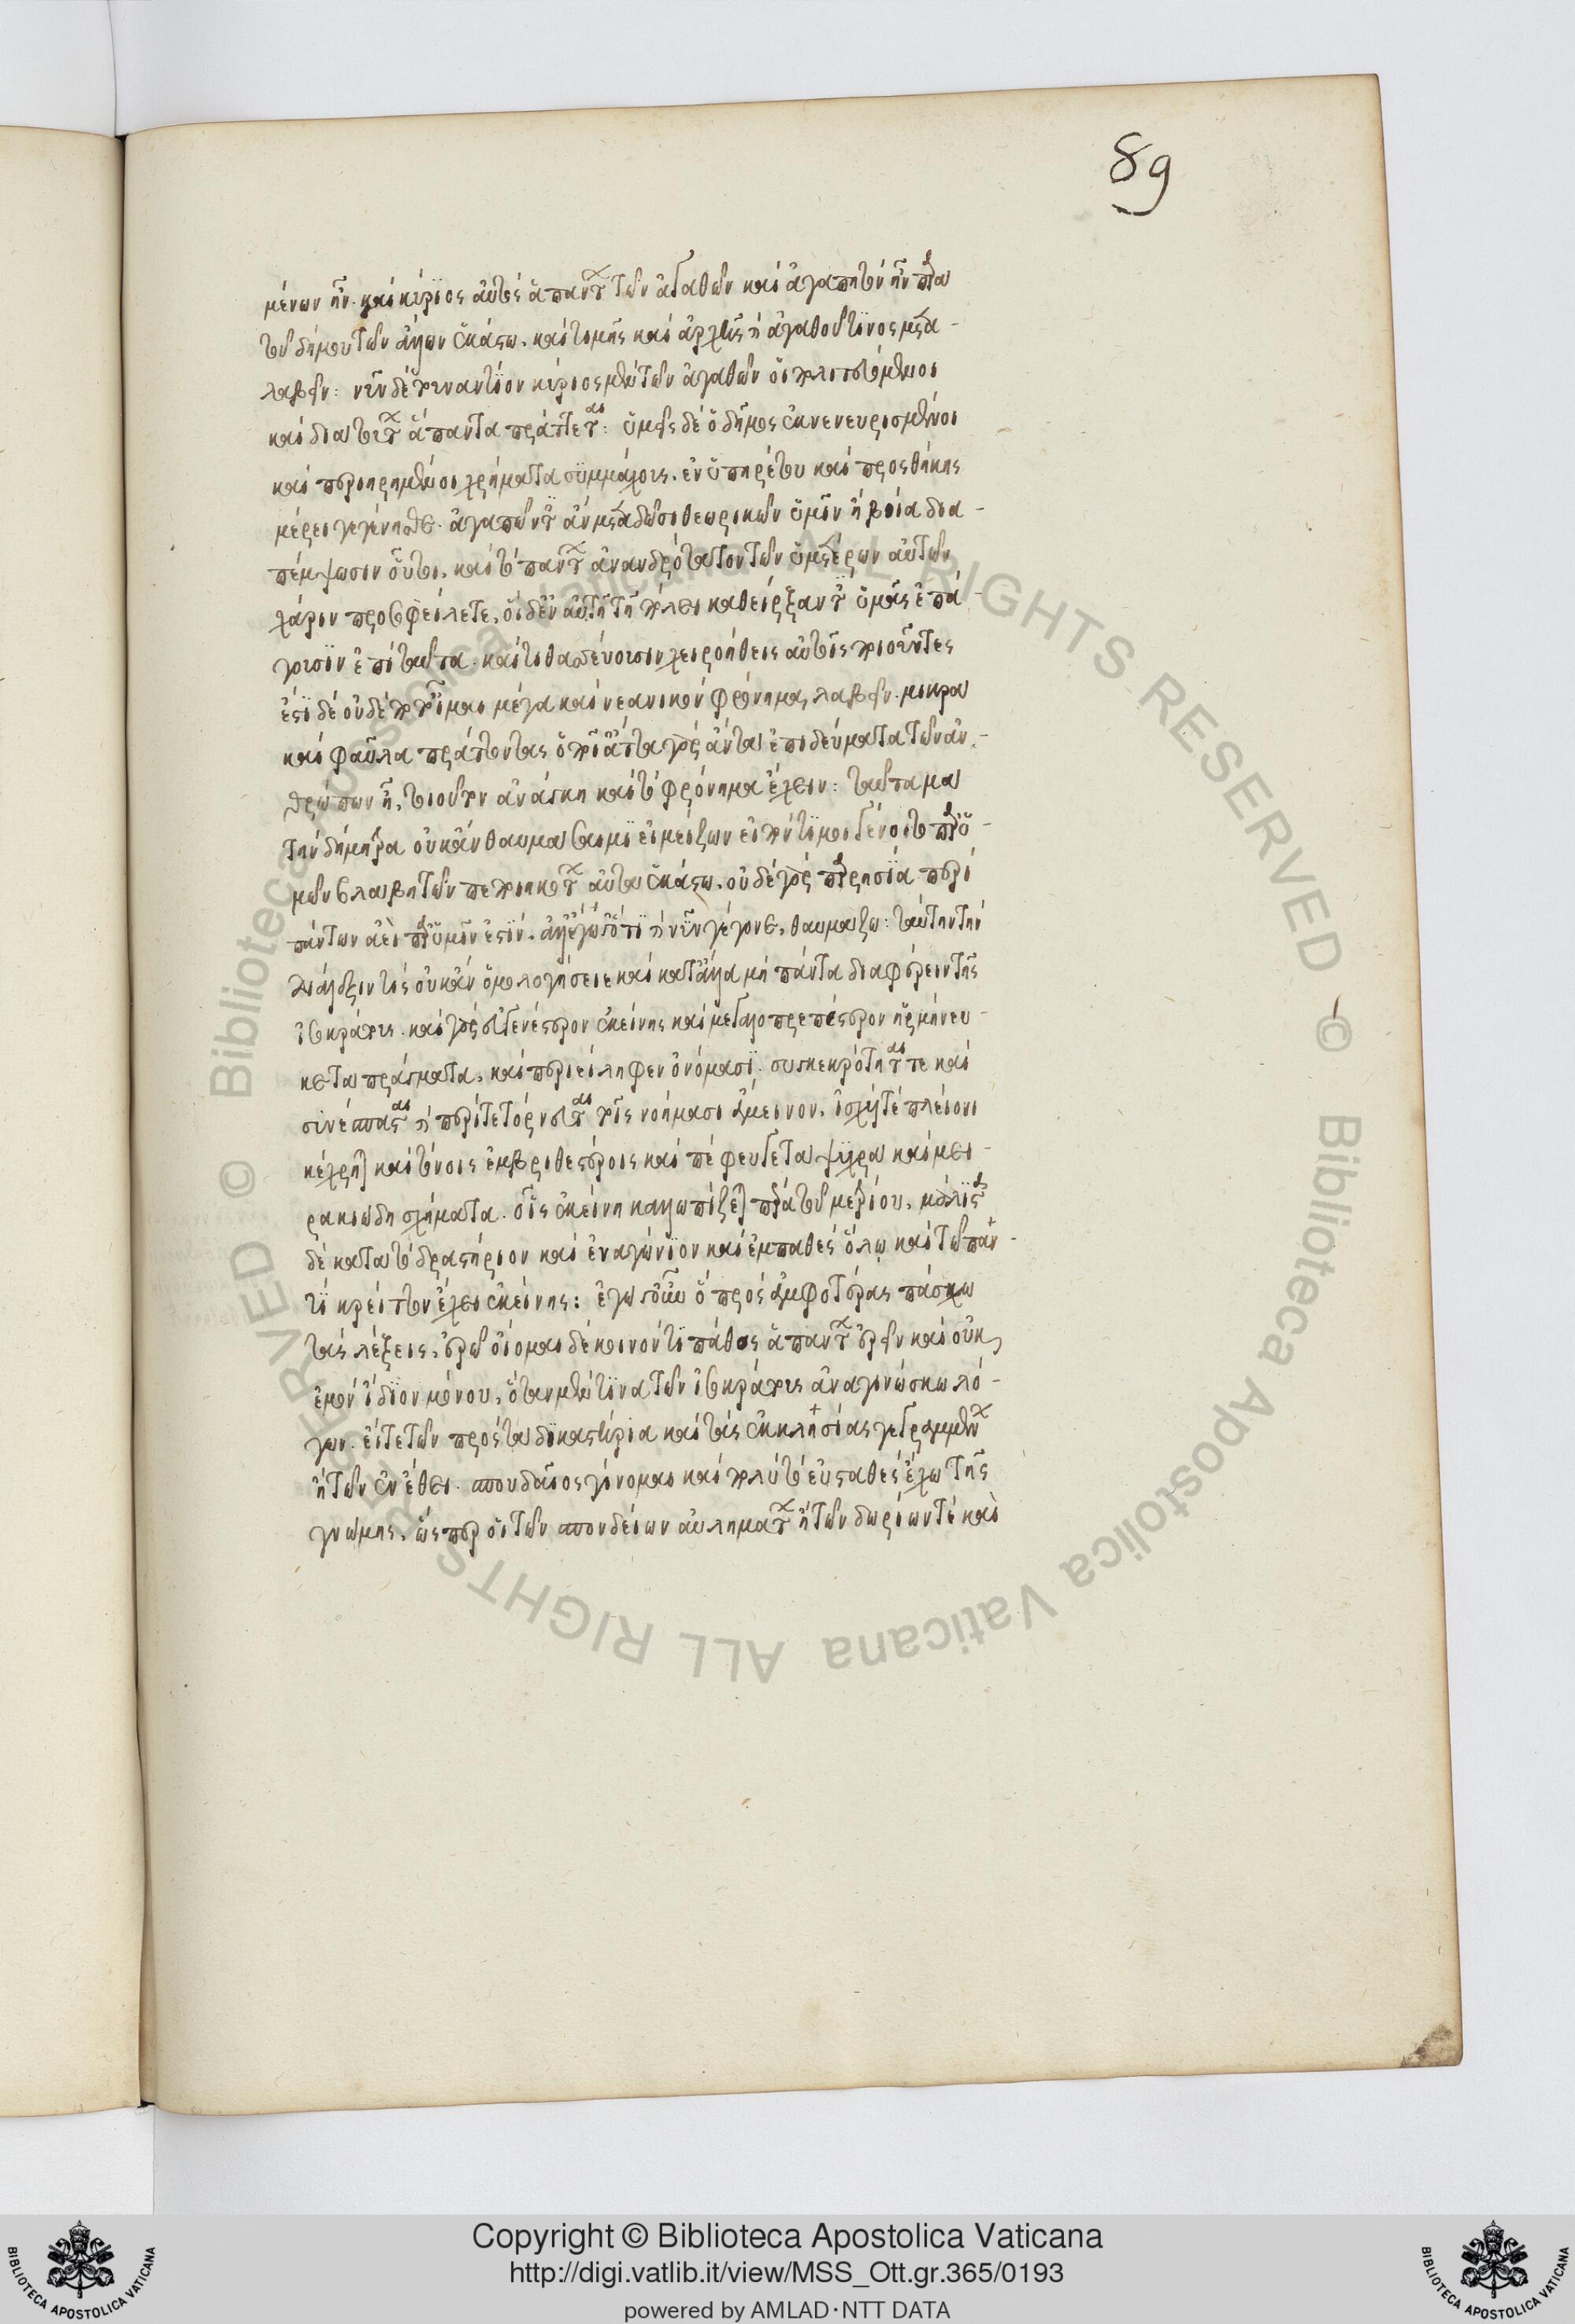 89
μένων ἦν. καὶ κύριος αὐτὸς ἁπάντων τῶν ἀγαθῶν καὶ ἀγαπητὸν ἦν παρὰ
τοῦ δήμου τῶν ἄλλων ἑκάστω. καὶ τιμῆς καὶ ἀρχῆς καὶ ἀγαθοῦ τινος μετα-
λαβεῖν: νῦν δὲ τουναντίον κύριοι μὲν τῶν ἀγαθῶν οἱ πολιτευόμενοι
καὶ διὰ τούτων ἅπαντα πράττεται: ὑμεῖς δὲ ὁ δῆμος ἐκνενευρισμένοι
καὶ περιηρημένοι χρήματα συμμάχους. ἐν ὑπηρέτου καὶ προσθήκης
μέρει γεγένησθε. ἀγαπῶντες ἂν μεταδῶσι θεωρικῶν ὑμῖν ἢ βοίδια
πέμψωσιν οὗτοι. καὶ τὸ πάντων ἀνανδρότατον τῶν ὑμετέρων αὐτῶν
χάριν προσοφείλετε. οἱ δ' ἐν αὐτῇ τῇ πόλει καθείρξαντες ὑμᾶς ἐπά-
γουσιν ἐπὶ ταῦτα. καὶ τιθασεύουσιν χειροήθεις αὑτοῖς ποιοῦντες
ἔστι δὲ οὐδέποτ' οἶμαι μέγα καὶ νεανικὸν φρόνημα λαβεῖν. μικρὰ
καὶ φαῦλα πράττοντας ὁποῖ' ἄττα γὰρ ἂν τὰ ἐπιτηδεύματα τῶν ἀν-
θρώπων ἦ. τοιοῦτον ἀνάγκη καὶ τὸ φρόνημα ἔχειν: ταῦτα μὰ
τὴν δήμητρα οὐκ ἂν θαυμάσαιμι εἰ μείζων εἰπόντι μοι γένοιτο παρ' ὑ-
μῶν βλάβη τῶν πεποιηκότων αὐτὰ ἑκάστω. οὐδὲ γὰρ παρρησία περὶ
πάντων ἀεὶ παρ' ὑμῖν ἐστίν. ἀλλ' ἔγωγε ὅτι καὶ νῦν γέγονε. θαυμάζω: ταύτην τὴν
διάλεξιν τίς οὐκ ἂν ὁμολογήσειε καὶ κατ' ἄλλα μὴ πάντα διαφέρειν τῆς
ἰσοκράτους. καὶ γὰρ εὐγενέστερον ἐκείνης καὶ μεγαλοπρεπέστερον ἡρμήνευ-
κε τὰ πράγματα. καὶ περιείληφεν ὀνόμασι. συγκεκρότηταί τε καὶ
συνέσπασται καὶ περιτετόρνευται τοῖς νοήμασι ἄμεινον. ἰσχύι τε πλείονι
κέχρηται καὶ τόνοις ἐμβριθεστέροις καὶ πέφευγε τὰ ψυχρὰ καὶ μει-
ρακιώδη σχήματα. οἷς ἐκείνη καλλωπίζεται παρὰ τοῦ μετρίου. μάλιστα
δὲ κατὰ τὸ δραστήριον καὶ ἐναγώνιον καὶ ἐμπαθὲς ὅλῳ καὶ τῷ παν-
τὶ κρεῖττον ἔχει ἐκείνης: ἐγὼ γοῦν ὃ πρὸς ἀμφοτέρας πάσχω
τὰς λέξεις. ἐρῶ οἴομαι δὲ κοινόν τι πάθος ἁπάντων ἐρεῖν καὶ οὐκ
ἐμὸν ἴδιον μόνου. ὅταν μέν τινα τῶν ἰσοκράτους ἀναγινώσκω λό-
γων. εἴτε τῶν πρὸς τὰ δικαστήρια καὶ τὰς ἐκκλησίας γεγραμμένων
ἢ τῶν ἐν ἔθει. σπουδαῖος γίνομαι καὶ πολὺ τὸ εὐσταθὲς ἔχω τῆς
γνώμης. ὥσπερ οἱ τῶν σπονδείων αὐλημάτων ἢ τῶν δωρίων τε καὶ
Copyright © Biblioteca Apostolica Vaticana
http://digi.vatlib.it/view/MSS_Ott.gr.365/0193
powered by AMLAD·NTT DATA
BIBLIOTECA APOSTOLICA VATICANA
BIBLIOTECA APOSTOLICA VATICANA
© Biblioteca Apostolica Vaticana ALL RIGHTS RESERVED
© Biblioteca Apostolica Vaticana ALL RIGHTS RESERVED